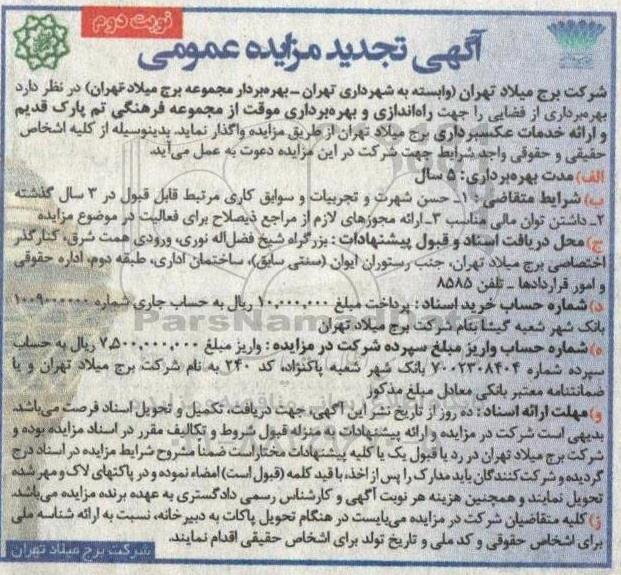 نوبت دوم
آگهی تجدید مزایده عمومی
شرکت برج میلاد تهران (وابسته به شهرداری تهران - بهره‌بردار مجموعه برج میلاد تهران) در نظر دارد
بهره‌برداری از فضایی را جهت راه‌اندازی و بهره‌برداری موقت از مجموعه فرهنگی تم پارک قدیم
و ارائه خدمات عکسبرداری برج میلاد تهران از طریق مزایده واگذار نماید. بدینوسیله از کلیه اشخاص
حقیقی و حقوقی واجد شرایط جهت شرکت در این مزایده دعوت به عمل می‌آید.
الف) مدت بهره‌برداری: ۵ سال
ب) شرایط متقاضی: ۱- حسن شهرت و تجربیات و سوابق کاری مرتبط قابل قبول در ۳ سال گذشته
۲- داشتن توان مالی مناسب ۳- ارائه مجوزهای لازم از مراجع ذیصلاح برای فعالیت در موضوع مزایده
ج) محل دریافت اسناد و قبول پیشنهادات: بزرگراه شیخ فضل‌اله نوری، ورودی همت شرق، کنارگذر
اختصاصی برج میلاد تهران، جنب رستوران ایوان (سنتی سابق)، ساختمان اداری، طبقه دوم، اداره حقوقی
و امور قراردادها - تلفن ۸۵۸۵
د) شماره حساب خرید اسناد: پرداخت مبلغ ۱۰,۰۰۰,۰۰۰ ریال به حساب جاری شماره ۱۰۰۹۰۰۰۰۰۰
بانک شهر شعبه گیشا بنام شرکت برج میلاد تهران
ه) شماره حساب واریز مبلغ سپرده شرکت در مزایده: واریز مبلغ ۷,۵۰۰,۰۰۰,۰۰۰ ریال به حساب
سپرده شماره ۷۰۰۲۳۰۸۴۰۴ بانک شهر شعبه پاکنژاد، کد ۲۴۰ به نام شرکت برج میلاد تهران و یا
ضمانتنامه معتبر بانکی معادل مبلغ مذکور
و) مهلت ارائه اسناد: ده روز از تاریخ نشر این آگهی، جهت دریافت، تکمیل و تحویل اسناد فرصت می‌باشد
بدیهی است شرکت در مزایده و ارائه پیشنهادات به منزله قبول شروط و تکالیف مقرر در اسناد مزایده بوده و
شرکت برج میلاد تهران در رد یا قبول یک یا کلیه پیشنهادات مختار است ضمناً مشروح شرایط مزایده در اسناد درج
گردیده و شرکت‌کنندگان باید مدارک را پس از اخذ، با قید کلمه (قبول است) امضاء نموده و در پاکتهای لاک و مهر شده
تحویل نمایند و همچنین هزینه هر نوبت آگهی و کارشناس رسمی دادگستری به عهده برنده مزایده می‌باشد.
ز) کلیه متقاضیان شرکت در مزایده می‌بایست در هنگام تحویل پاکات به دبیرخانه، نسبت به ارائه شناسه ملی
برای اشخاص حقوقی و کد ملی و تاریخ تولد برای اشخاص حقیقی اقدام نمایند.
شرکت برج میلاد تهران
ParsNamadData